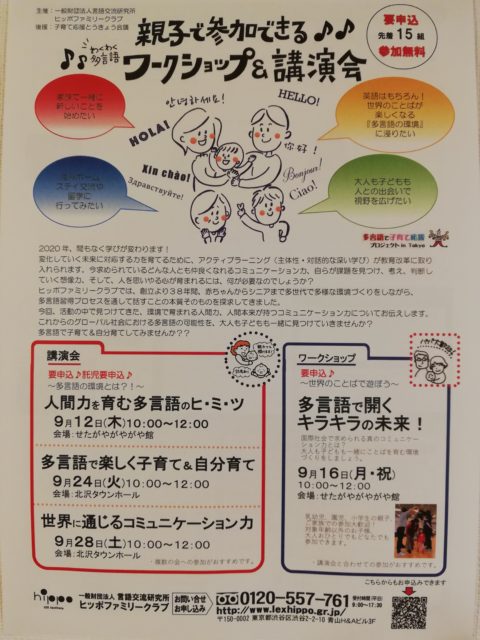 主催：一般財団法人言語交流研究所
ヒッポファミリークラブ
後援：子育て応援とうきょう会議
要申込
先着15組
参加無料
親子で参加できる♪♪
♪♪わくわく多言語
ワークショップ&講演会
家族で一緒に
新しいことを
始めたい
안녕하세요!
HELLO!
HOLA!
你好!
英語はもちろん!
世界のことばが
楽しくなる
『多言語の環境』
に浸りたい
Xin chào!
Bonjour!
Здравствуйте!
Ciao!
ホーム
ステイ交流や
留学に
行ってみたい
大人も子どもも
人との出会いで
視野を広げたい
多言語で子育て応援
プロジェクト in Tokyo
2020年、間もなく学びが変わります!
変化していく未来に対応する力を育てるために、アクティブラーニング（主体性・対話的な深い学び）が教育改革に取り
入れられます。今求められているどんな人とも仲良くなれるコミュニケーション力、自らが課題を見つけ、考え、判断し
ていく想像力、そして、人を思いやる心が育まれるには、何が必要なのでしょうか?
ヒッポファミリークラブでは、創立より38年間、赤ちゃんからシニアまで多世代で多様な環境づくりをしながら、
多言語習得プロセスを通して話すことの本質そのものを探求してきました。
今回、活動の中で見つけてきた、環境で育まれる人間力、人間本来が持つコミュニケーション力についてお伝えします。
これからのグローバル社会における多言語の可能性を、大人も子どもも一緒に見つけていきませんか?
多言語で子育て＆自分育てしてみませんか??
講演会
要申込♪託児要申込♪
～多言語の環境とは?!～
人間力を育む多言語のヒ・ミ・ツ
9月12日(木)10:00～12:00
会場:せたがやがやがや館
多言語で楽しく子育て＆自分育て
9月24日(火)10:00～12:00
会場:北沢タウンホール
世界に通じるコミュニケーション力
9月28日(土)10:00～12:00
会場:北沢タウンホール
・複数の会への参加がおすすめです。
ワークショップ
要申込♪
～世界のことばで遊ぼう～
多言語で開く
キラキラの未来!
国際社会で求められる真のコミュニケー
ション力とは?
大人も子どもも一緒にことばを育む環境
づくりをしましょう。
9月16日(月・祝)
10:00～12:00
会場:せたがやがやがや館
乳幼児、園児、小学生の親子、
ご家族での参加大歓迎!
対象年齢以外のお子様、
大人おひとりでもどなたでも
参加できます。
・講演会と合わせての参加がおすすめです。
こちらからもお申込みできます
hippo
一般財団法人 言語交流研究所
ヒッポファミリークラブ
お問い合せ
お申し込み
0120-557-761
受付時間(平日)
9:00～17:30
http://www.lexhippo.gr.jp/
〒150-0002 東京都渋谷区渋谷2-2-10 青山H&Aビル3F